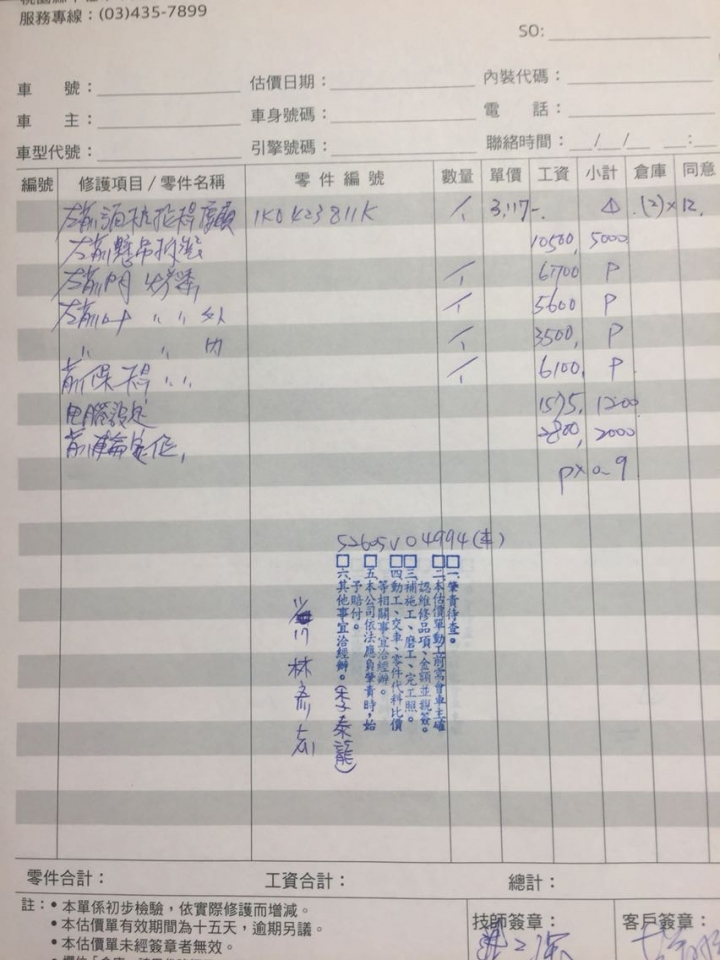 服務專線：(03)435-7899
SO:
車 號： 估價日期： 內裝代碼：
車 主： 車身號碼： 電 話：
車型代號： 引擎號碼： 聯絡時間： / / :
編號 修護項目/零件名稱 零 件 編 號 數量 單價 工資 小計 倉庫 同意
1K0423811K 1 3,117-. (2)×12,
左前懸吊拆裝 10500, 5000
左前門烤漆, 1 6700 P
左前叶 〃 〃 外 1 5600 P
〃 〃 內 1 3500, P
前保桿 〃 1 6100, P
電腦設定 1575, 1200
前輪定位, 2800, 2000
P×0.9
52605V04994(車)
一肇責待查。
二本估價單動工前需會車主確
認維修品項、金額並親簽。
三補施工、磨工、完工照。
四動工、交車、零件代料比價
等相關事宜洽經辦。
五本公司依法應負肇責時，始
予賠付。
六其他事宜洽經辦。李泰龍)
林彥
零件合計： 工資合計： 總計：
註：•本單係初步檢驗，依實際修護而增減。
•本估價單有效期間為十五天，逾期另議。
•本估價單未經簽章者無效。
技師簽章： 客戶簽章：